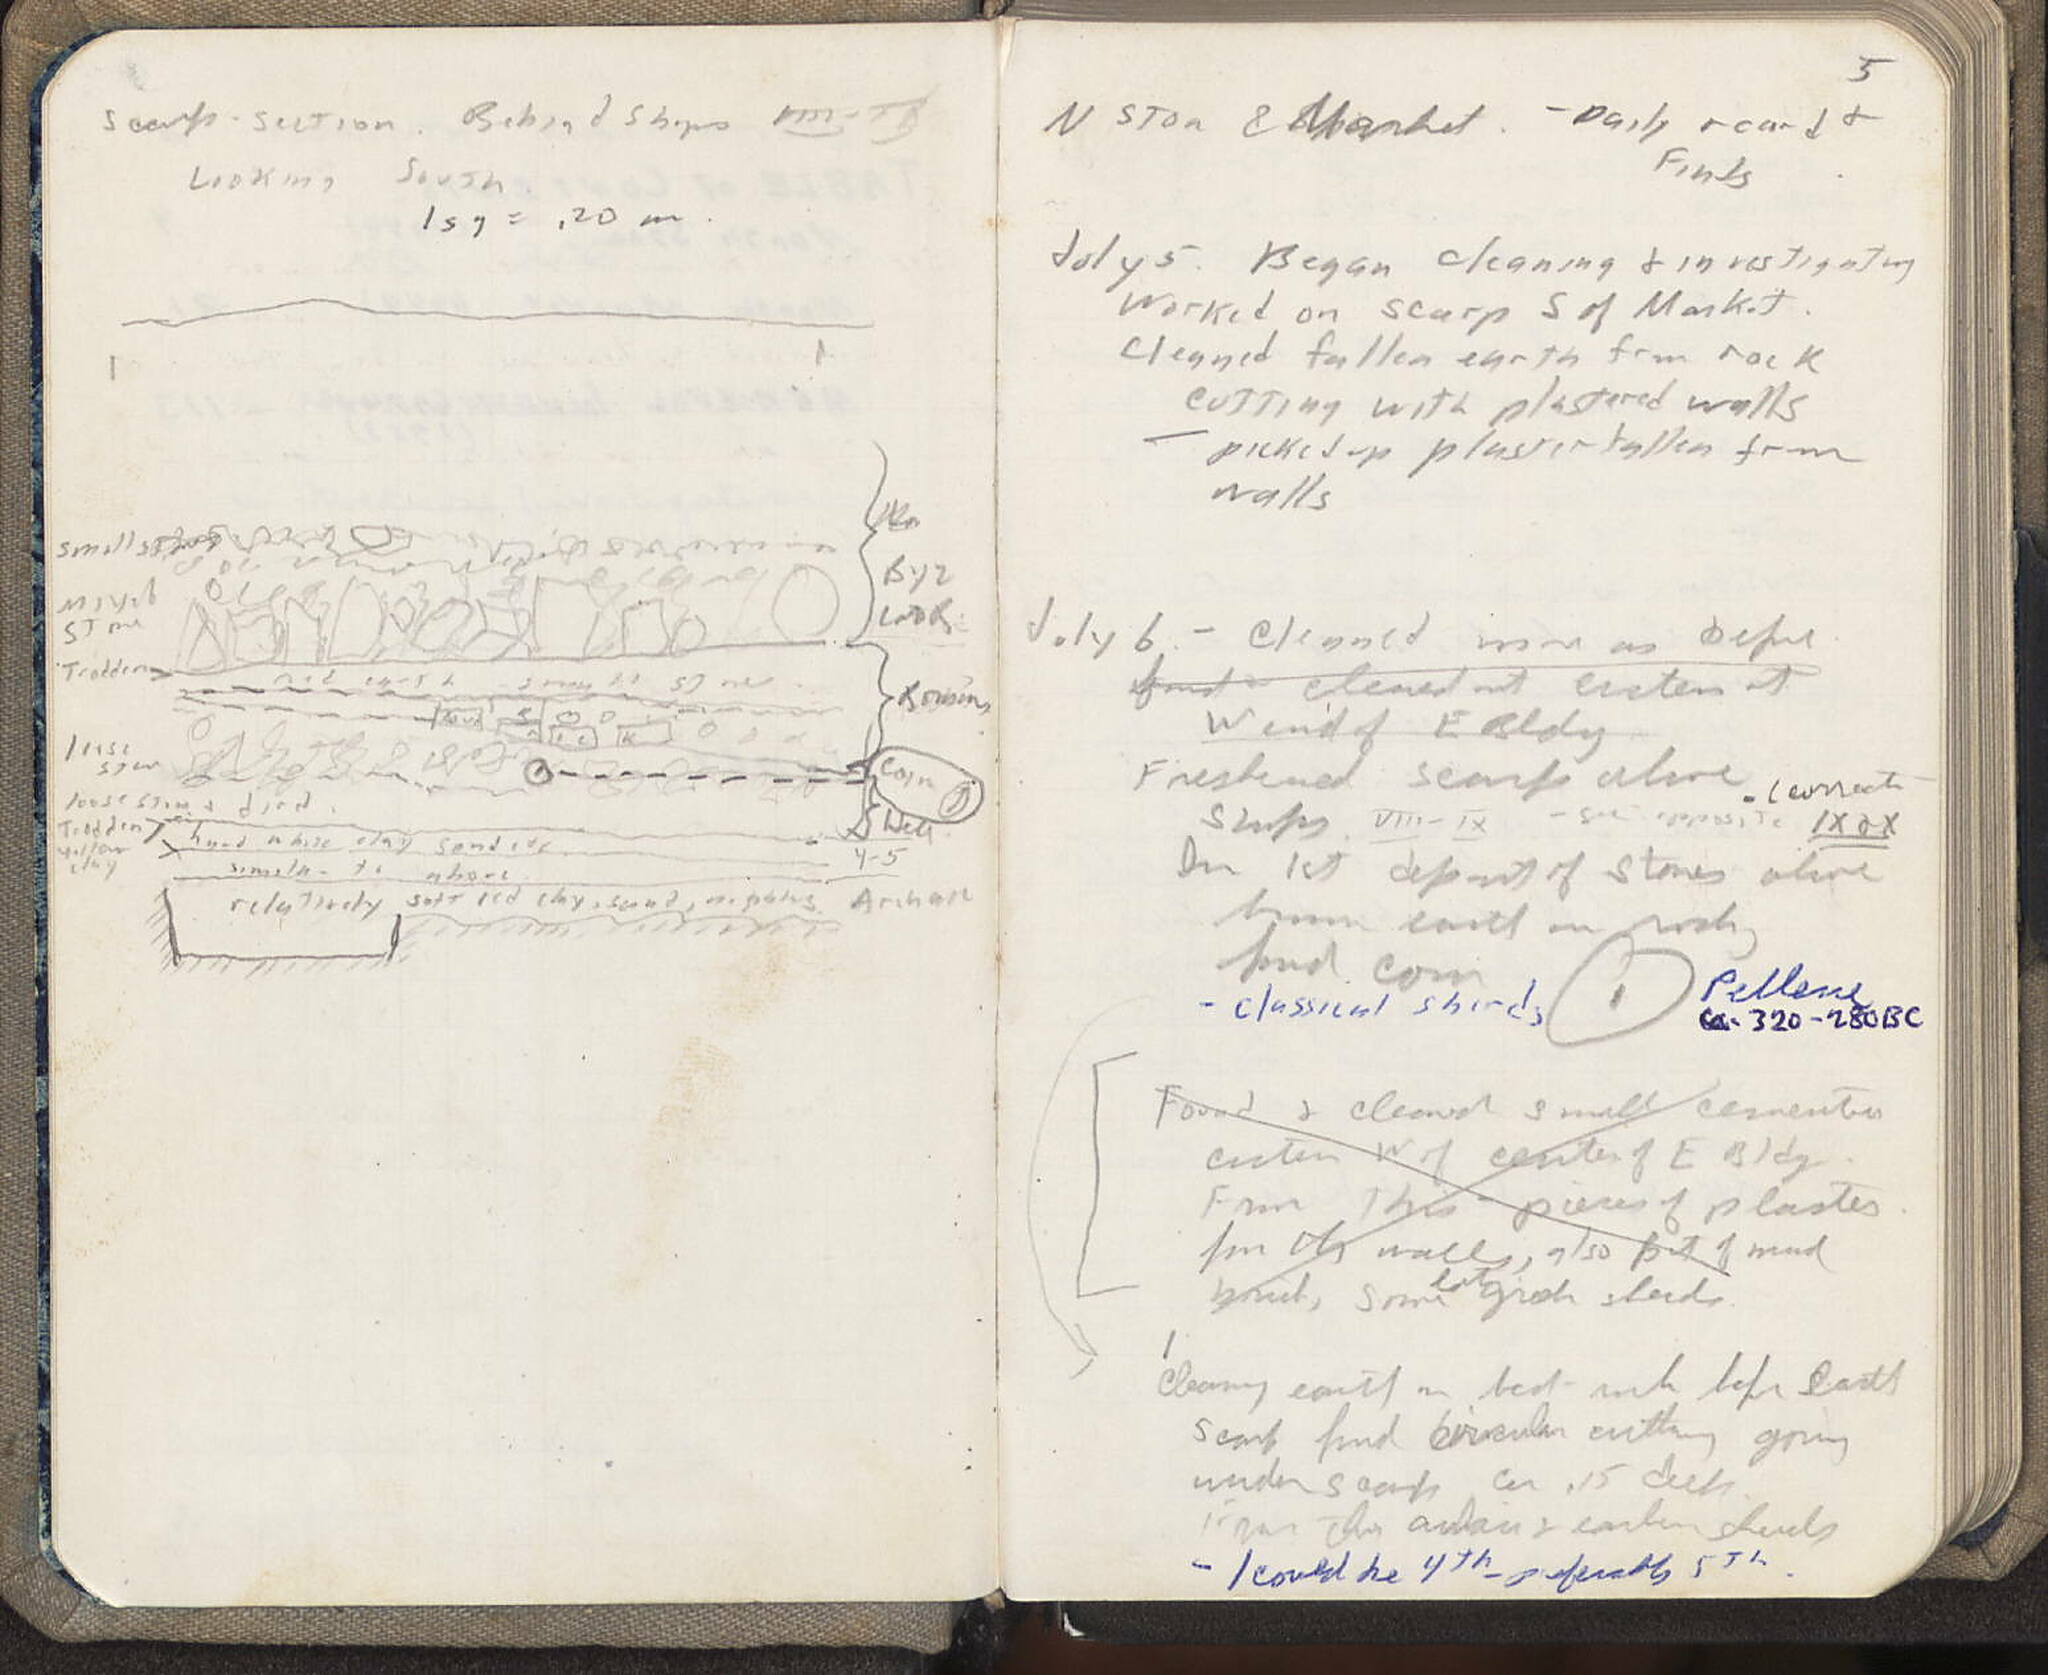 Scarp-section. Behind Shops
Looking South
1 sq = .20 m.
small stones
Mixed
Stone
Byz
Trodden
red earth - small stones
Roman
loose
stones
Coin 1
loose stones
Trodden
yellow
clay
hard white clay
4-5
similar to above
relatively soft red clay, sand,
Archaic
5
N Stoa & Market. - Daily record &
Finds
July 5. Began cleaning & investigating
Worked on scarp S of Market.
Cleaned fallen earth from rock
cutting with plastered walls
- picked up plaster fallen from
walls
July 6 - Cleaned more as before
cleaned out cistern at
W end of E Bldg
Freshened scarp above
- (correct
Shops VIII-IX - see opposite IX & X
In 1st deposit of stones above
brown earth on
found coin
- classical sherds
1
Pellene
ca. 320-280 BC
Found & cleaned small
cistern W of center of E Bldg.
From this pieces of plaster
from its walls, also bit of mud
brick, some late Greek sherds.
Cleaning earth on bed rock before East
scarp found circular cutting going
under scarp ca .15 deep.
From this archaic & earlier sherds
- 1 could be 4th - preferably 5th.